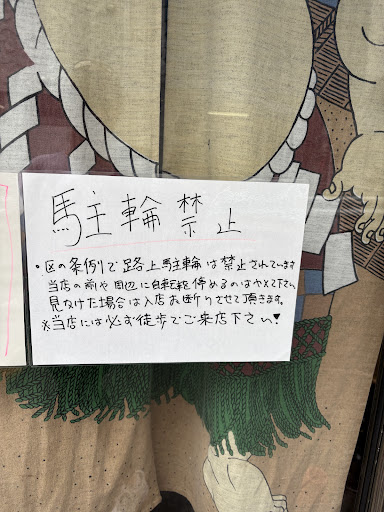 駐輪禁止
・区の条例で路上駐輪は禁止されています
当店の前や周辺に自転車を停めるのはやめて下さい
見かけた場合は入店お断りさせて頂きます。
※当店には必ず徒歩でご来店下さい♥